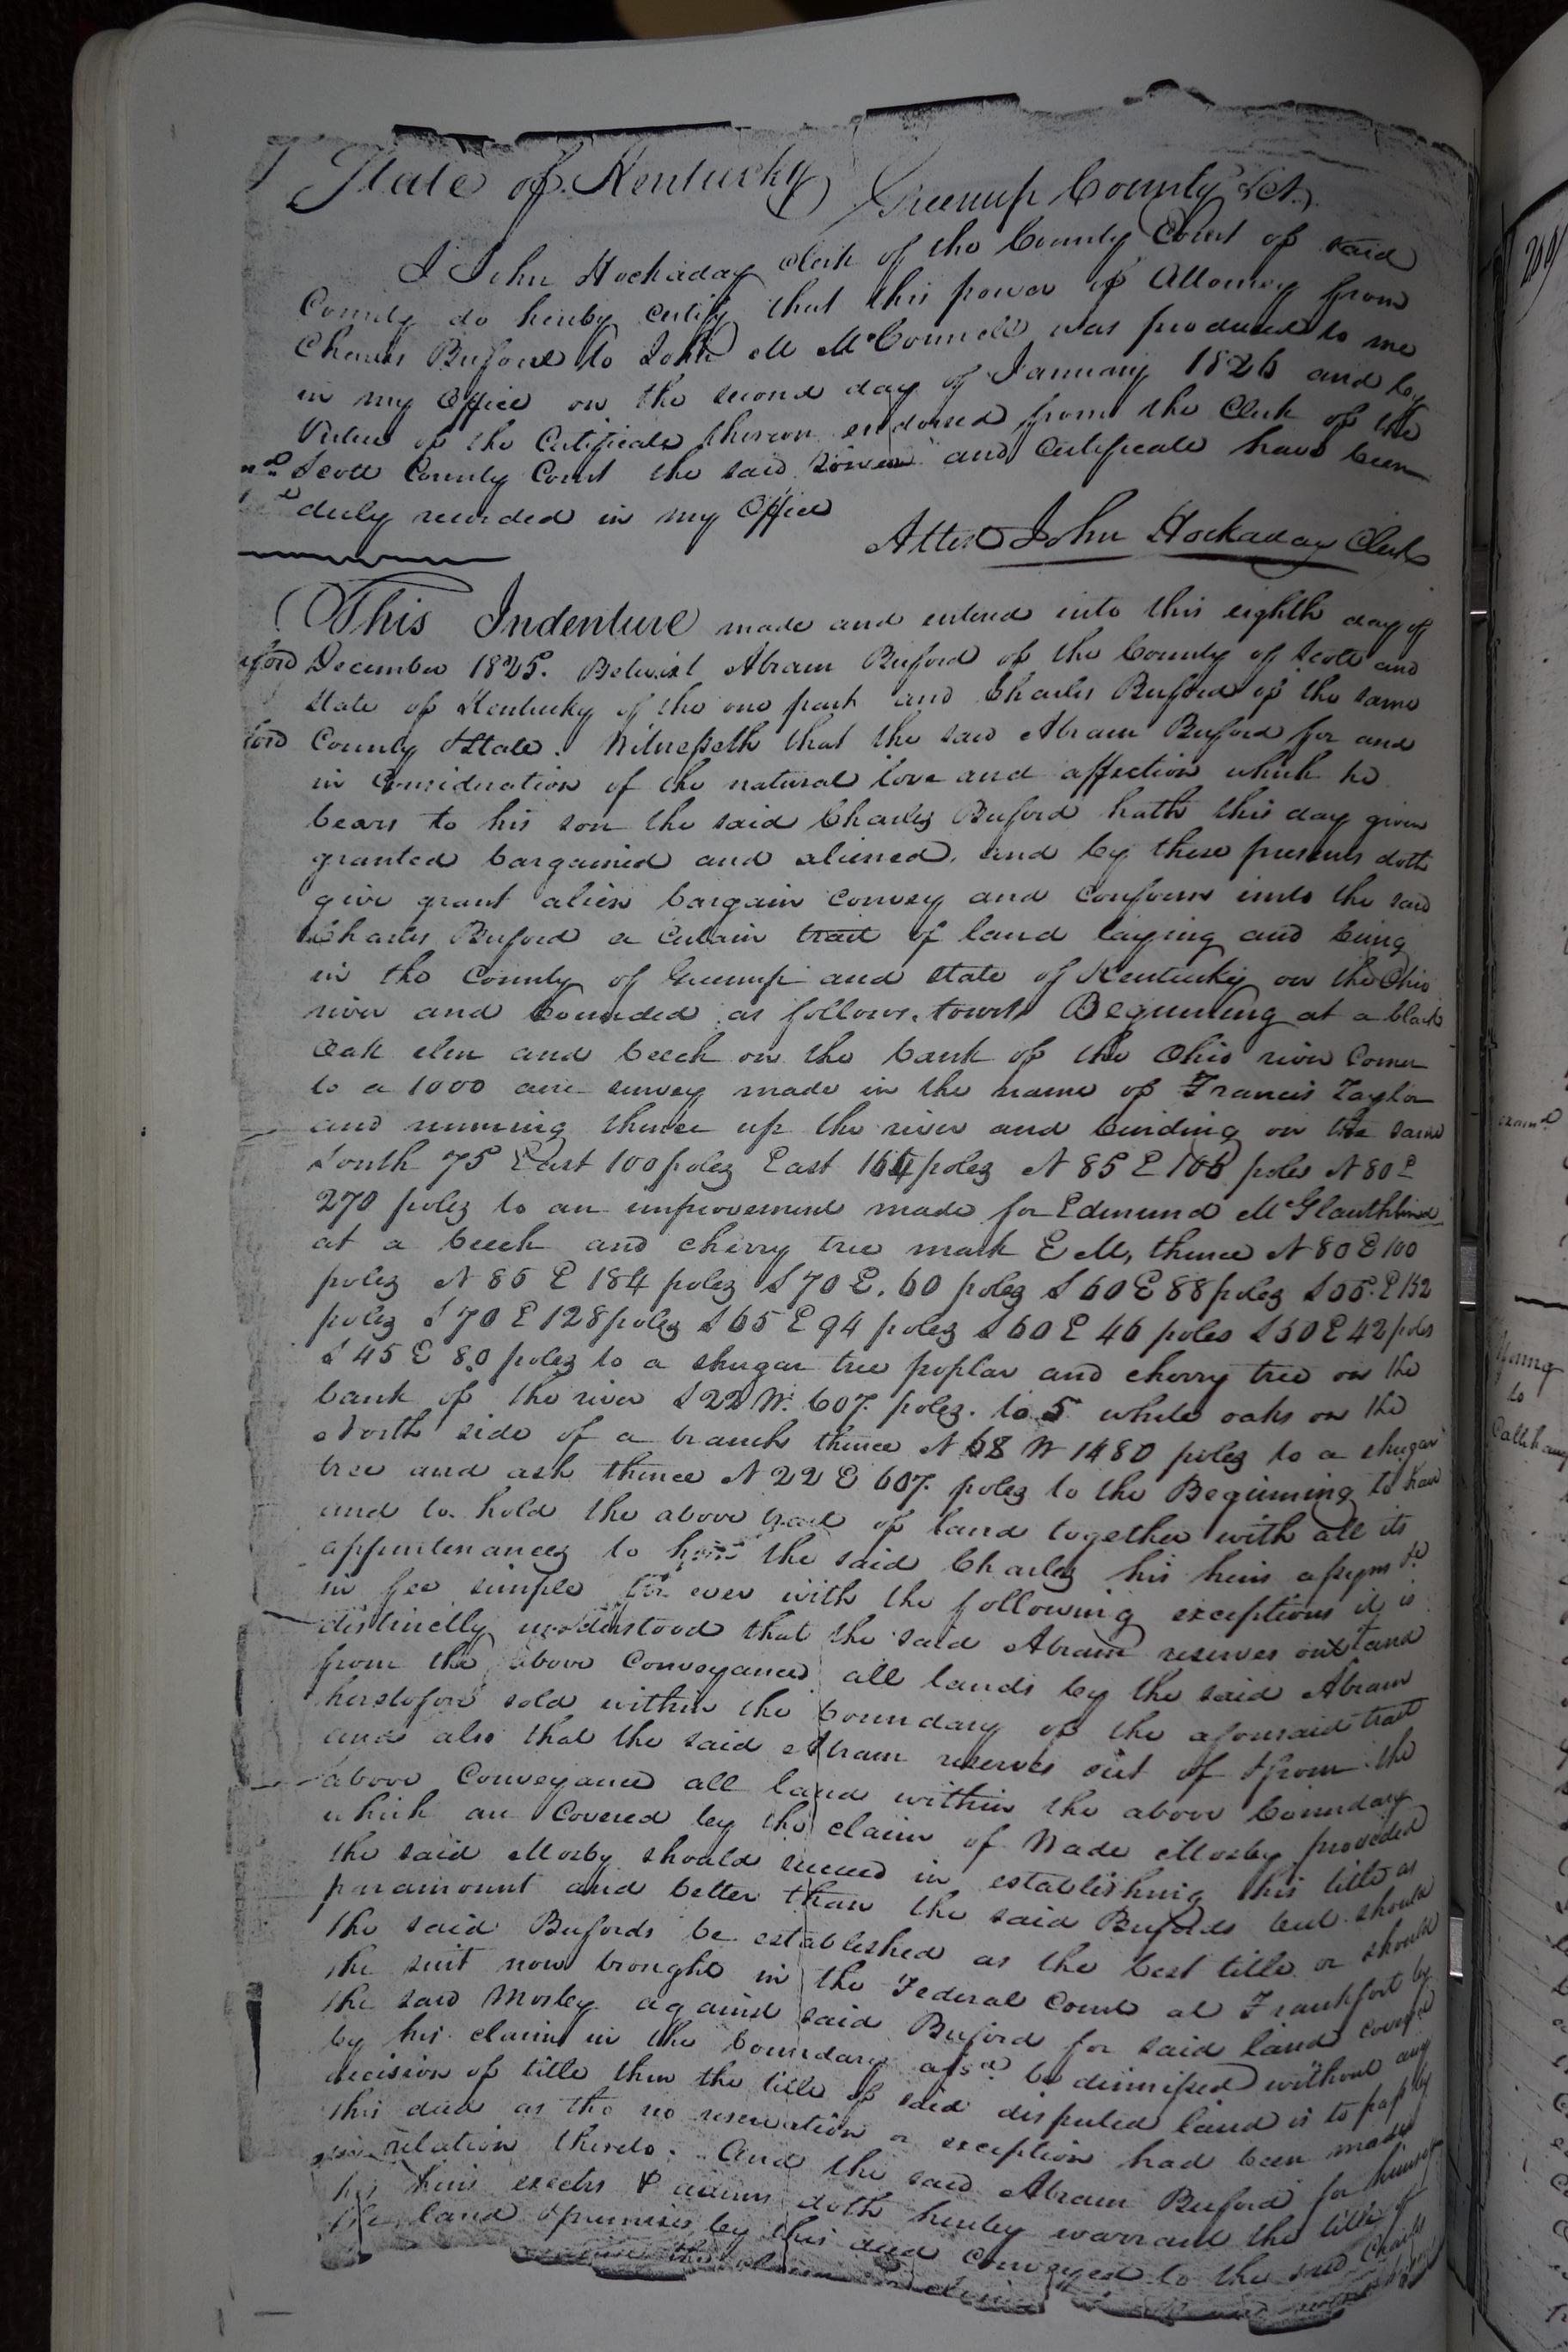 State of Kentucky Greenup County Sct.
I John Hockaday Clerk of the County Court of said
County do hereby certify that this power of Attorney from
Charles Buford to John M McConnell was produced to me
in my Office on the second day of January 1826 and by
Virtue of the Certificate thereon endorsed from the Clerk of the
Scott County Court the said power and Certificate have been
duly recorded in my Office
Attest John Hockaday Clerk
This Indenture made and entered into this eighth day of
December 1825. Betwixt Abram Buford of the County of Scott and
State of Kentucky of the one part and Charles Buford of the same
County & State. Witnesseth that the said Abram Buford for and
in Consideration of the natural love and affection which he
bears to his son the said Charles Buford hath this day given
granted bargained and aliened, and by these presents doth
give grant alien bargain convey and confirm unto the said
Charles Buford a certain tract of land laying and being
in the County of Greenup and state of Kentucky on the Ohio
river and bounded as follows, towit Beginning at a black
Oak elm and beech on the bank of the Ohio river Corner
to a 1000 acre survey made in the name of Francis Taylor
and running thence up the river and binding on the same
South 75 East 100 poles East 164 poles N 85 E 106 poles N 80 E
270 poles to an improvement made for Edmund
at a beech and cherry tree mark E M, thence N 80 E 100
poles N 85 E 184 poles S 70 E. 60 poles S 60 E 88 poles S 55. E 152
poles S 70 E 128 poles S 65 E 94 poles S 60 E 46 poles S 50 E 42 poles
S 45 E 80 poles to a shugar tree poplar and cherry tree on the
bank of the river S 22 W. 607. poles. to 5 white oaks on the
North side of a branch thence N 68 W 1480 poles to a shugar
tree and ash thence N 22 E 607. poles to the Beginning to have
and to hold the above tract of land together with all its
appurtenances to the said Charles his heirs assigns &c
in fee simple for ever with the following exceptions it is
distinctly understood that the said Abram reserves out and
from the above Conveyance all lands by the said Abram
heretofore sold within the boundary of the aforesaid tract
and also that the said Abram reserves out of & from the
above Conveyance all land within the above boundary
which are Covered by the claim of Wade Mosby proveded
the said Mosby should succeed in establishing his title as
paramount and better than the said Bufords but should
the said Bufords be established as the best title or should
the suit now brought in the Federal Court at Frankfort by
the said Mosby against said Buford for said land covered
by his claim in the boundary afsd be dismissed without any
decision of title then the title of said disputed land is to pass by
this deed as tho no reservation or exception had been made
in relation thereto. And the said Abram Buford for himself
his heirs exectrs & admrs doth hereby warrant the title of
the land & premises by this deed Conveyed to the said Charles